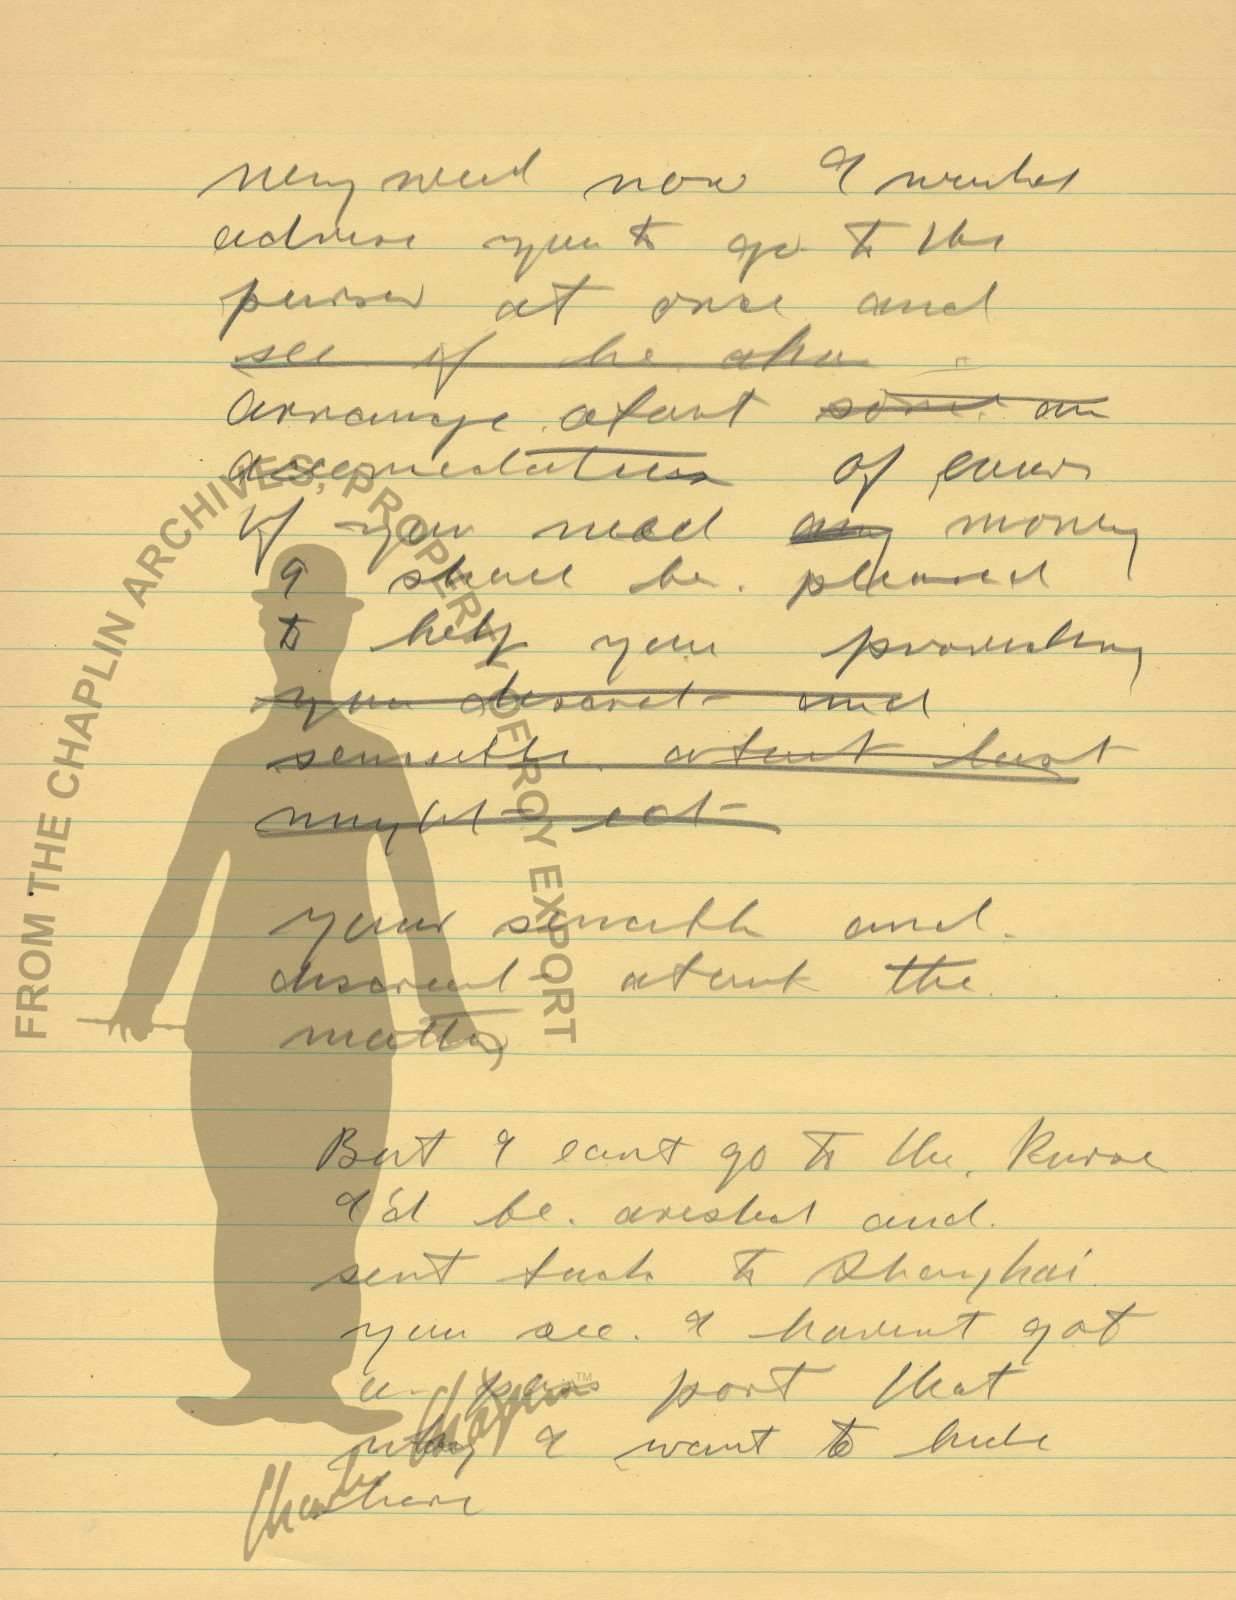 very well now I
advise you to go to the
purser at once and
see if he
arrange about some an
accomodation of yours
If you need any money
I shall be pleased
to help you providing
you discreet and
sensible about last
night ect
your sensible and
discreet about the
matter
But I cant go to the Purse
I'd be arested and
sent back to Shanghai
you see. I havent got
a pass port that
why I want to hide
here
FROM THE CHAPLIN ARCHIVES, PROPERTY OF ROY EXPORT
Charlie Chaplin™